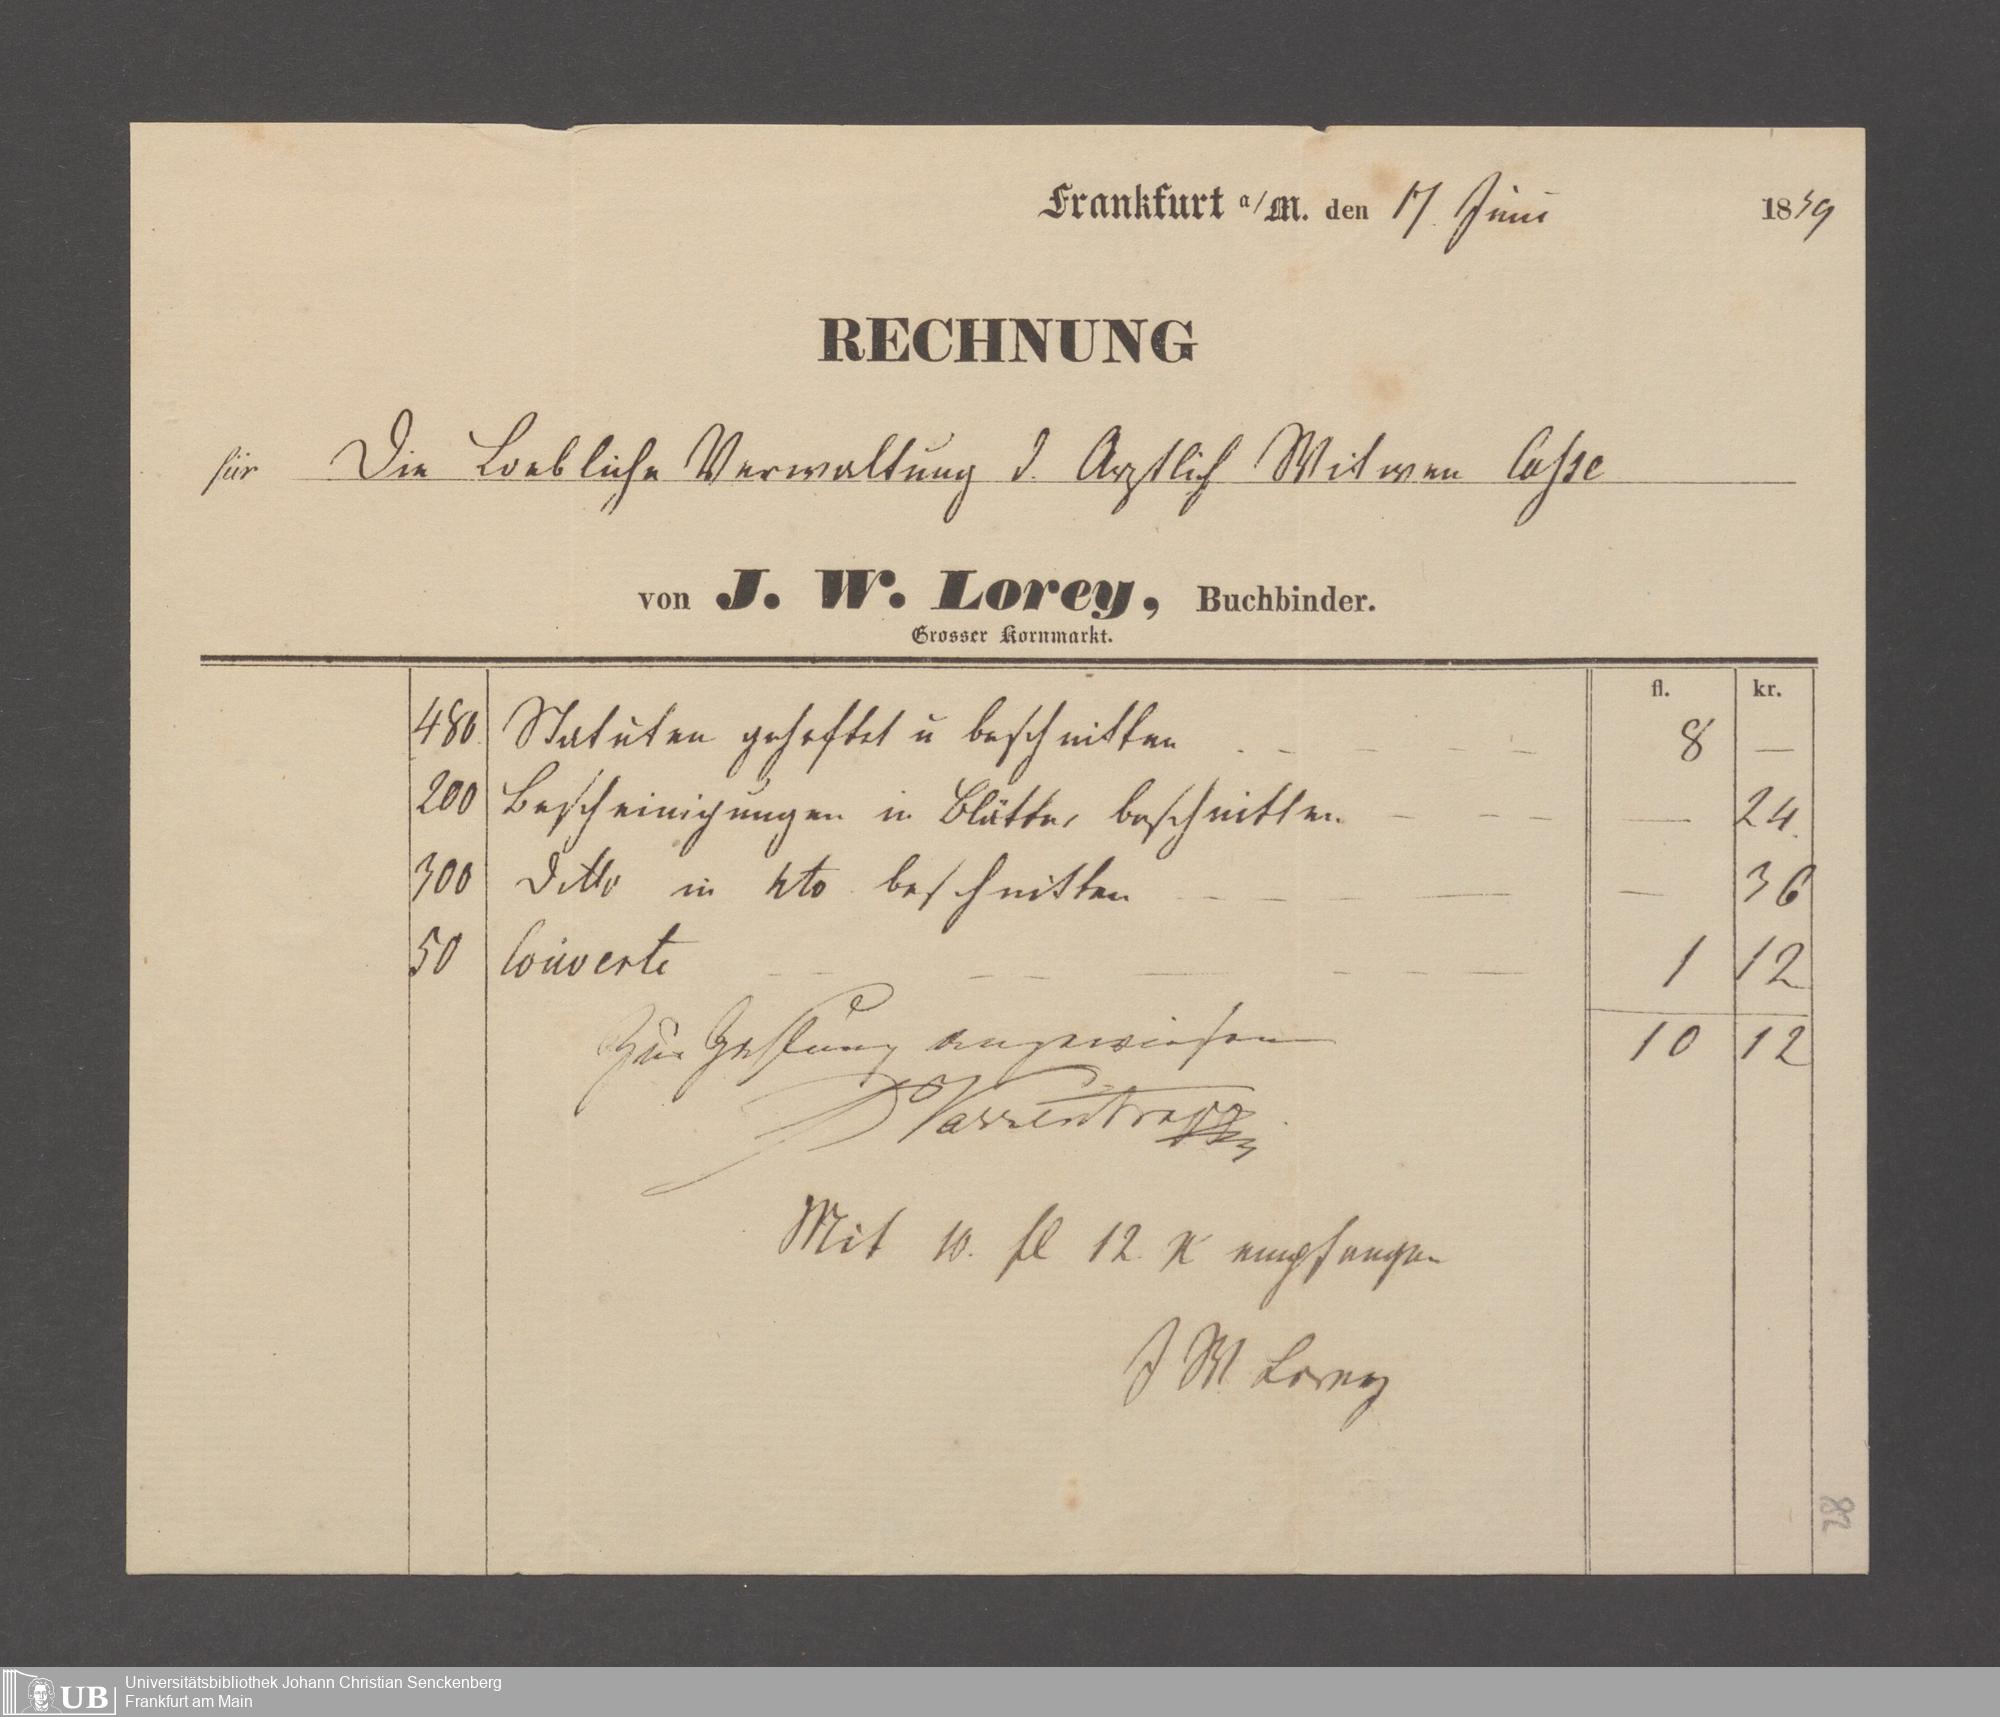 Frankfurt a/M. den 17. Juni 1859
RECHNUNG
für Die Loebliche Verwaltung d. Arztlich Witwen Casse
von J. W. Lorey, Buchbinder.
Grosser Kornmarkt.
fl. kr.
480 Statuten geheftet u beschnitten 8 —
200 Bescheinigungen in Blätter beschnitten — 24.
300 Ditto in 4to beschnitten — 36
50 Couverte 1 12
10 12
Zur Zahlung angewiesen
Dr Varrentrapp
Mit 10. fl 12. K empfangen
J W. Lorey
82
UB Universitätsbibliothek Johann Christian Senckenberg
Frankfurt am Main